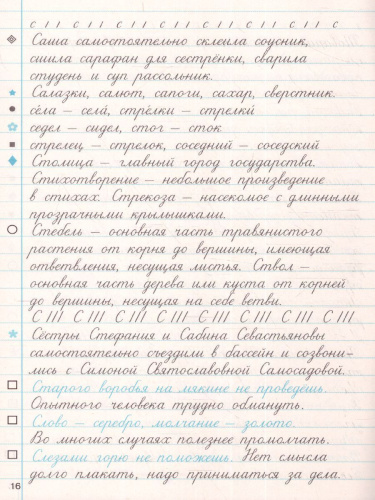 С // С /// С // С /// С // С /// С // С
Саша самостоятельно склеила соусник,
сшила сарафан для сестрёнки, сварила
студень и суп рассольник.
Салазки, салют, сапоги, сахар, сверстник.
сёла – села́, стре́лки – стрелки́
седел – сидел, стог – сток
стрелец – стрелок, соседний – соседский
Столица – главный город государства.
Стихотворение – небольшое произведение
в стихах. Стрекоза – насекомое с длинными
прозрачными крылышками.
Стебель – основная часть травянистого
растения от корня до вершины, имеющая
ответвления, несущая листья. Ствол –
основная часть дерева или куста от корней
до вершины, несущая на себе ветви.
С /// С /// С /// С /// С /// С /// С /// С ///
Сёстры Стефания и Сабина Севастьяновы
самостоятельно съездили в бассейн и созвони-
лись с Симоной Святославовной Самосадовой.
Старого воробья на мякине не проведёшь.
Опытного человека трудно обмануть.
Слово – серебро, молчание – золото.
Во многих случаях полезнее промолчать.
Слезами горю не поможешь. Нет смысла
долго плакать, надо приниматься за дела.
16